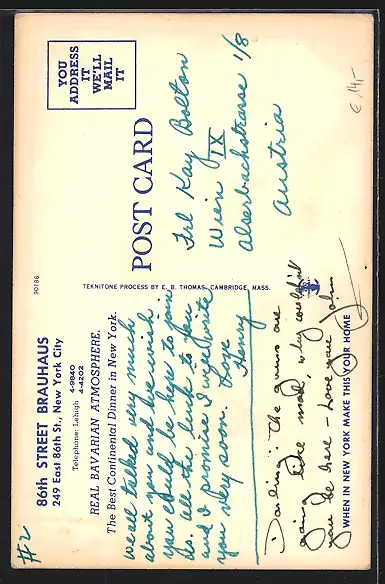 #2
86th STREET BRAUHAUS
249 East 86th St., New York City
Telephone: Lehigh 4-9840
4-4202
REAL BAVARIAN ATMOSPHERE.
The Best Continental Dinner in New York.
we all talked very much
about you and we wish
you could be here to
all the luck to you
and I promise I will write
you very soon. Love
Henny
Darling! The guns are
going like mad, why couldn't
you be here - Love you John
WHEN IN NEW YORK MAKE THIS YOUR HOME
90186
TEKNITONE PROCESS BY E. B. THOMAS, CAMBRIDGE, MASS.
POST CARD
YOU
ADDRESS
IT
WE'LL
MAIL
IT
Frl Kay Bolton
Wien IX
Alserbachstrasse 1/8
Austria
€ 14,-